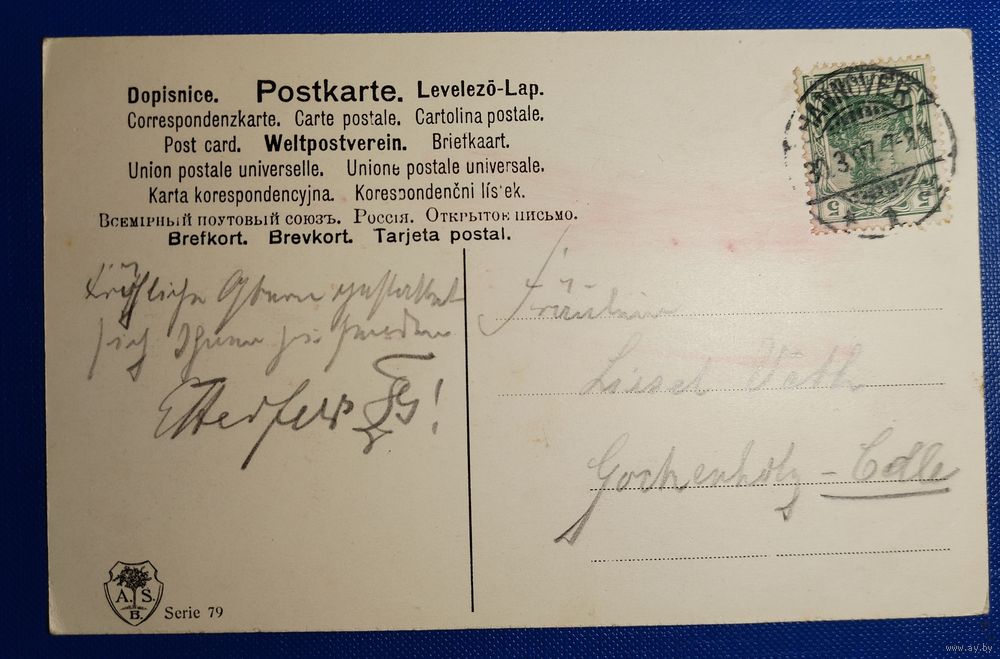 Dopisnice. Postkarte. Levelezō-Lap.
Correspondenzkarte. Carte postale. Cartolina postale.
Post card. Weltpostverein. Briefkaart.
Union postale universelle. Unione postale universale.
Karta korespondencyjna. Korespondenčni lístek.
Всемірный поутовый союзъ. Россія. Открытое письмо.
Brefkort. Brevkort. Tarjeta postal.
HANNOVER
5 5
Fröhliche Ostern gestattet
sich Ihnen zu senden
Fräulein
Liesel Veth
Gockenholz - Celle
A. S.
B.
Serie 79
www.ay.by